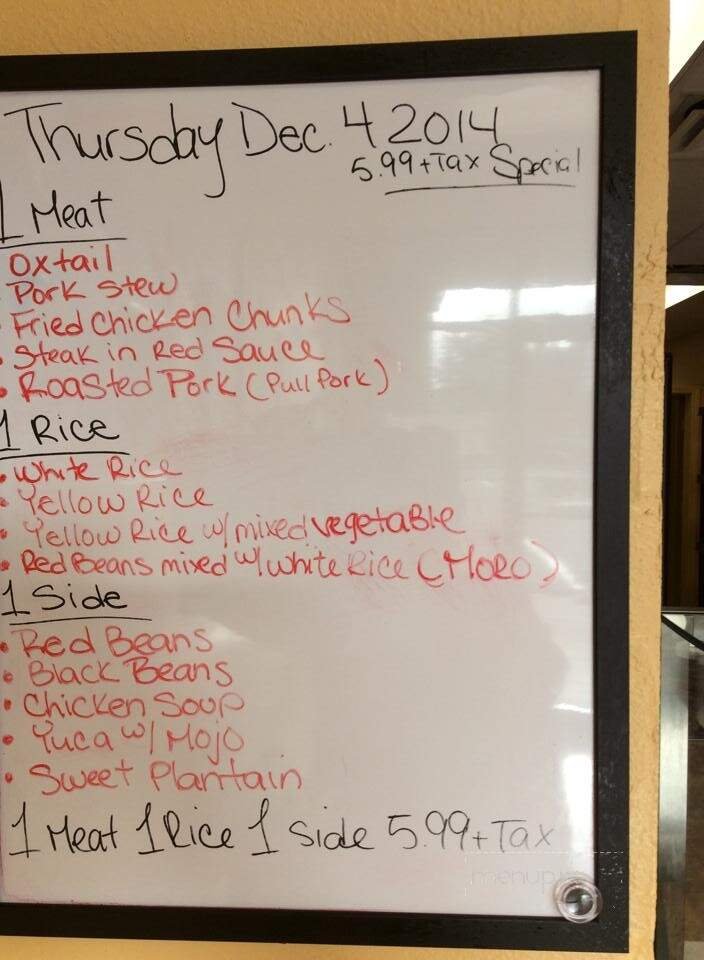 Thursday Dec. 4 2014
5.99+Tax Special
1 Meat
Oxtail
Pork Stew
• Fried Chicken Chunks
• Steak in Red Sauce
• Roasted Pork (Pull Pork)
1 Rice
• White Rice
• Yellow Rice
• Yellow Rice w/ mixed vegetable
• Red Beans mixed w/ white Rice (MORO)
1 Side
• Red Beans
• Black Beans
• Chicken Soup
• Yuca w/ Mojo
• Sweet Plantain
1 Meat 1 Rice 1 Side 5.99+Tax